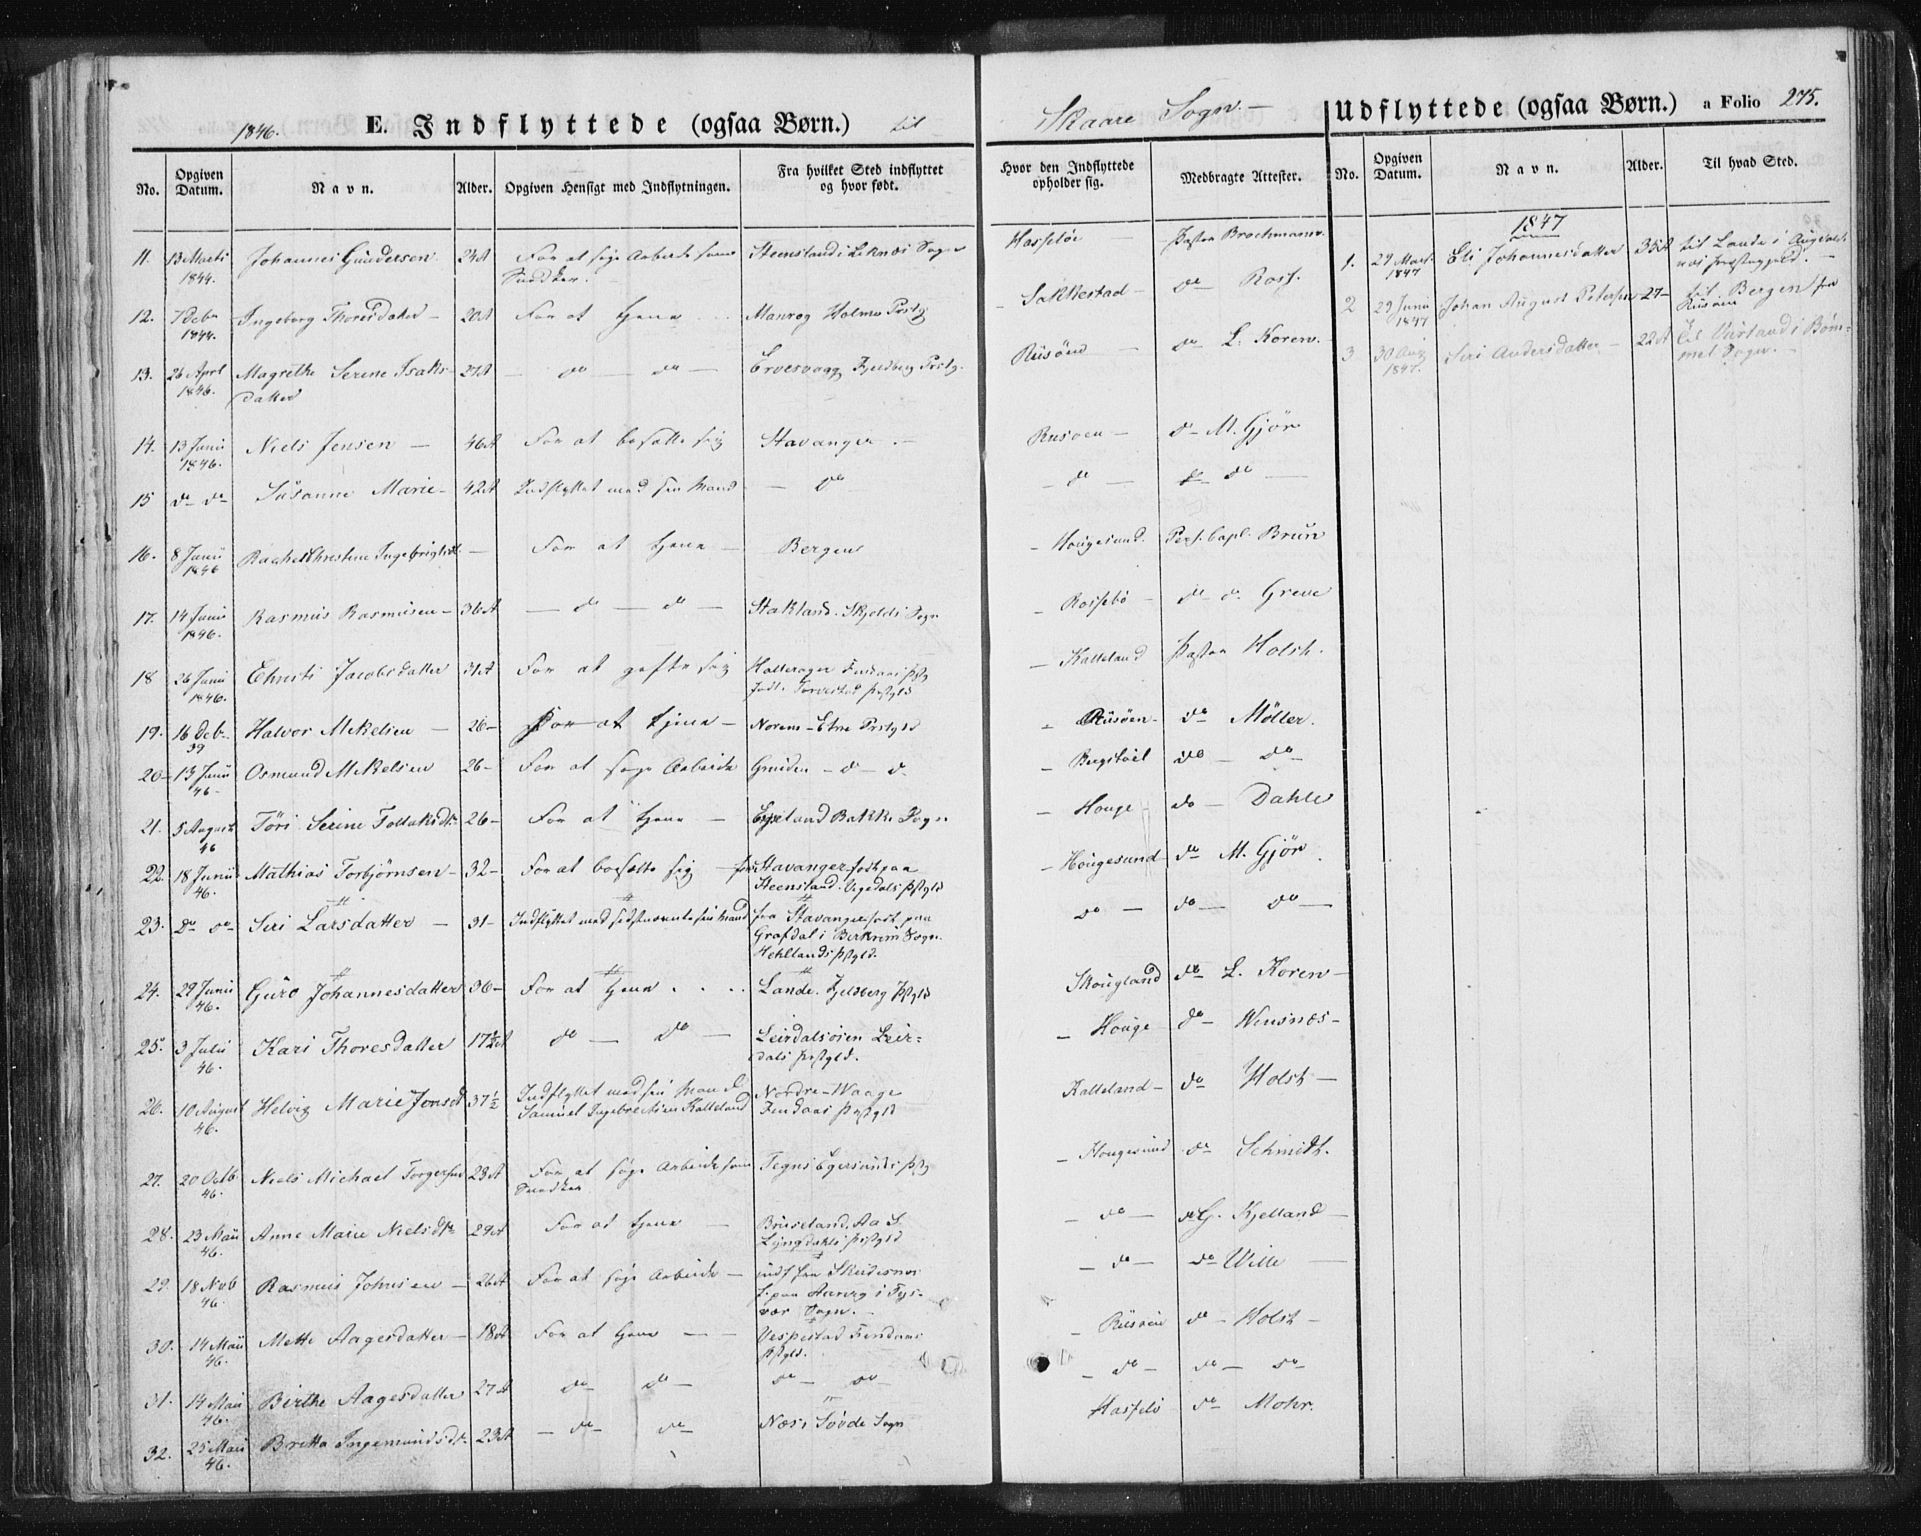 1846. E. Indflyttede (ogsaa Børn.) til Skaare Sogn. — Udflyttede (ogsaa Børn.) a Folio 275.
No. Opgiven Datum. Navn. Alder. Opgiven Hensigt med Indflytningen. Fra hvilket Sted indflyttet og hvor født. Hvor den Indflyttede opholder sig. Medbragte Attester.
11. 13 Marts 1844. Johannes Gundersen 24A For at søge Arbeide som Snedker. Steensland i Leknæs Sogn Hasseløe Pastor Brochmann.
12. 7 Debr 1844. Ingeborg Thoresdatter — 20A For at tjene Holme Prstg. — Sakkestad — do Ross.
13. 26 April 1846. Magrethe Serine Isaksdatter 27A — do — do — Ervesvaag Fjeldberg Prstg. Risøen — do L. Koren.
14. 13 Junii 1846. Niels Jensen — 46A For at bosætte sig Stavanger. — Risøen — do M. Gjør
15 do do Susanne Marie — 42A Indflyttet med sin Mand — do — do — do —
16. 8 Junii 1846 Rachel Christine Ingebrigtsdt — For at tjene — Bergen — Hougesund. Pers. Capl. Brun
17. 14 Junii 1846. Rasmus Rasmusen — 36A — do — do — Stakland. Skjolds Sogn — Rossebø — do do Greve
18 26 Junii 1846. Christi Jacobsdatter 31A For at gifte sig Hallerager Findaas Pstg født Torvestad Pstgld — Kalleland Pastor Holst.
19. 16 Deb. 39 Halvor Mikelsen — 26 — For at tjene — Norem — Etne Prstgld — Risøen — do Møller.
20 — 13 Junii 46 — Osmund Mikelsen 26 — For at søge Arbeide — do — do — do — do
21. 5 August 46 Tøri Serine Tollaksdtr 26 — For at tjene — Bakke Sogn — Houge do — Dahle
22. 18 Junii 46. Mathias Torbjørnsen — 32 — For at bosætte sig — fra Stavanger født paa Steensland. Ogedals Pstgld — Hougesund — do M. Gjør.
23. do do Siri Larsdatter — 31 — Indflyttet med sidstnævnte sin Mand fra Stavanger født paa Grafdal i Birkrem Sogn. Hehllands Pstgld. do — do — do —
24. 29 Junii 46. Guro Johannesdatter 36 — For at tjene . . . Lande. Fjeldberg Pstgld Skougland do L. Koren —
25. 3 Julii 46. Kari Thoresdatter 17½A do — do — Leirdalsøren Leirdals Prstgld. — Houge do — Wensnæs —
26. 10 August 46. Helvig Marie Jonsdt 37½ Indflyttet med sin Mand Samuel Ingebrectsen Kalleland Nordre-Waage Findaas Pstgld Kalleland — do Holst —
27. 20 Octb 46. Niels Michael Torgersen 23A For at søge Arbeide som Snedker Tegns Egersunds Pstg — Hougesund do Schmidt.
28. 23 Maii 46. Anne Marie Nielsdtr 29A For at tjene — Briseland. Aa S. Lyngdahls Prstgld — do — do G. Kjelland —
29. 18 Novb 46. Rasmus Johnsen — 26A For at søge Arbeide — indf fra Skudesnæs f. paa i Tysvær Sogn. — — do — do Wille —
30. 14 Maii 46. Mette Aagesdatter — 18A For at tjene — Vespestad Findaas Pstgld. — Risøen do — Holst —
31. 14 Maii 46. Birthe Aagesdatter 27A do — do — do — do — — do — do — do
32. 25 Maii 46. Britta Ingemundsdtr 23A — do — do — Næs Søvde Sogn Hasselø do Mohr.
No. Opgiven Datum. Navn. Alder. Til hvad Sted.
1847
1. 29 Mars. 1847 Eli Johannesdatter 35A til Lande i Augvaldsnæs Præstegjeld. —
2 29 Junii 1847 Johan August Petersen 27 — til Bergen fra Risøen
3 30 Aug 1847. Siri Andersdatter — 22A til i Bømmel Sogn. —